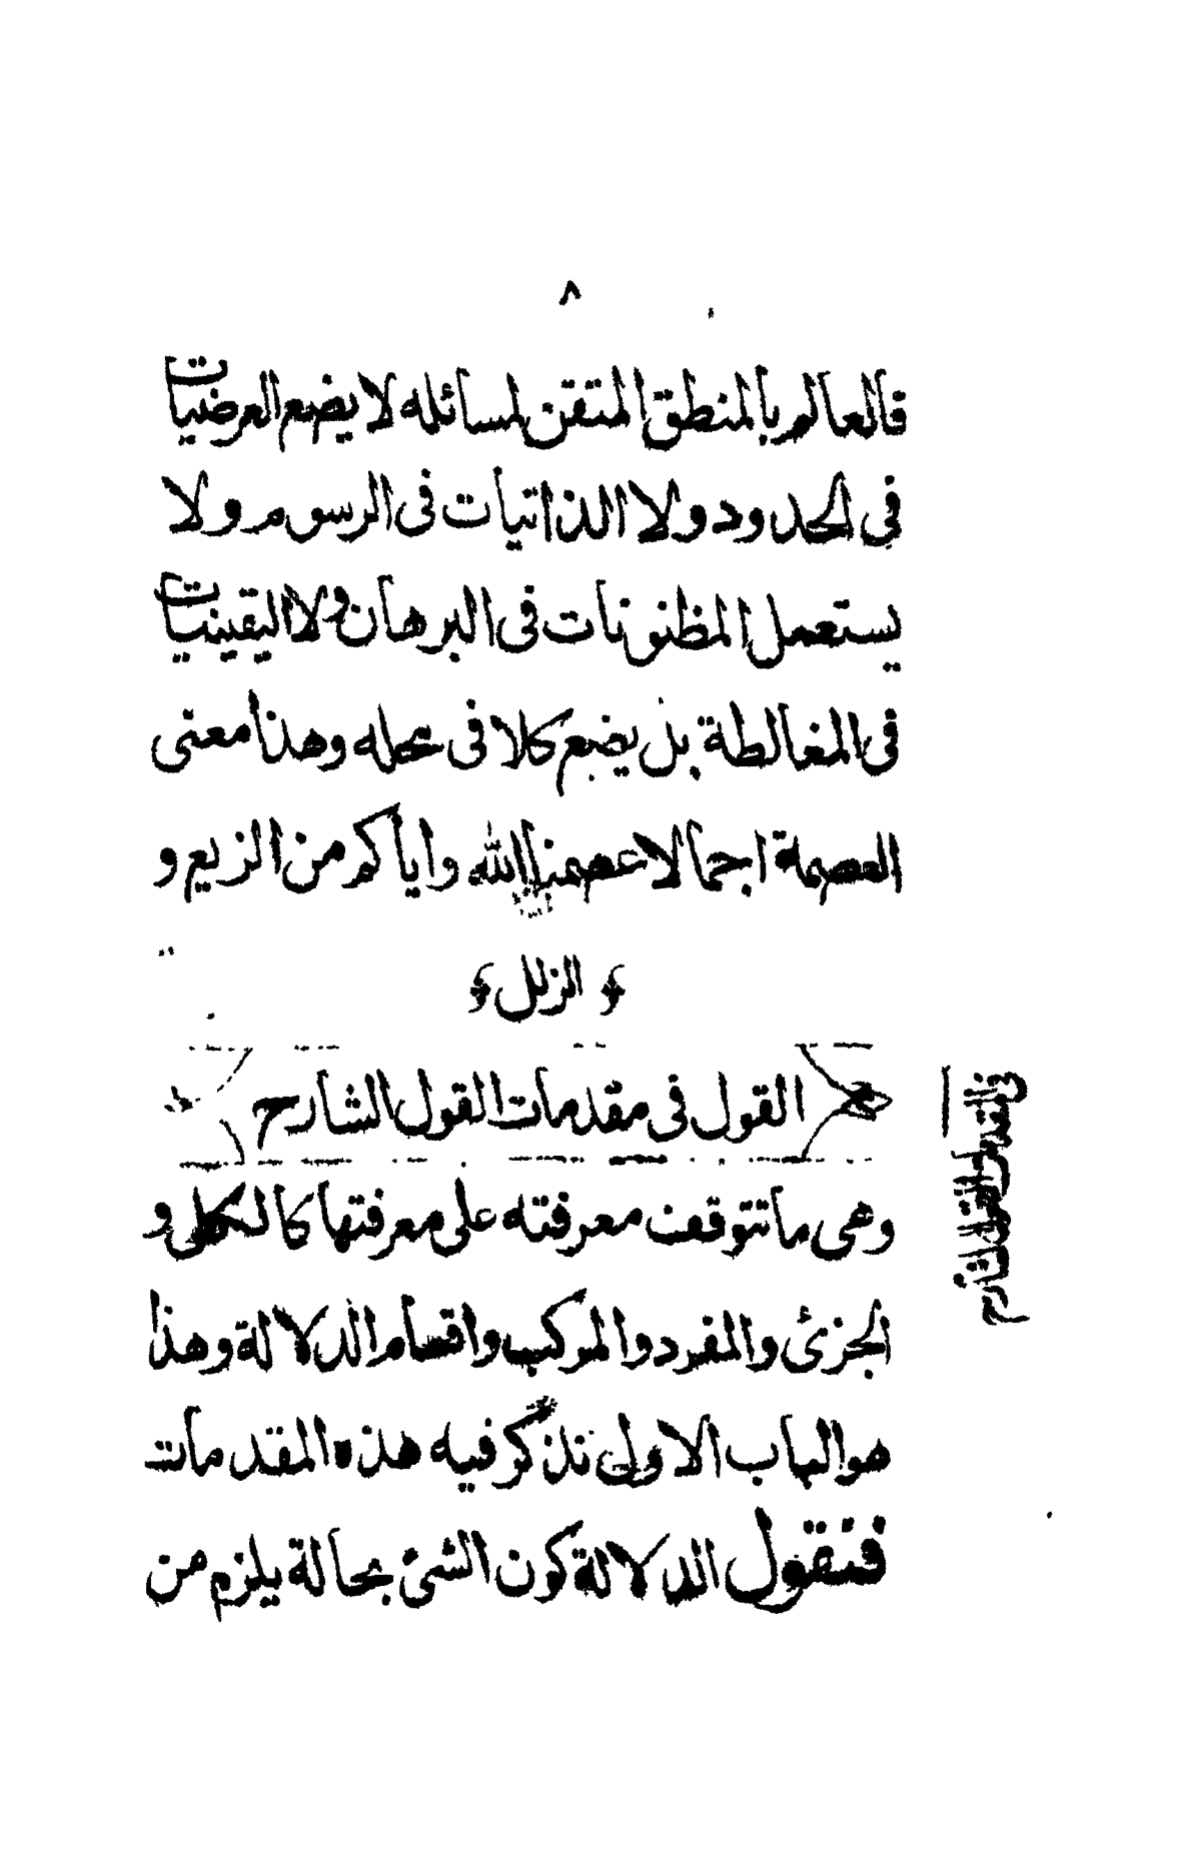 ٨
فالعالم بالمنطق المتقن لمسائله لا يضع العرضيات
فى الحدود ولا الذاتيات فى الرسوم ولا
يستعمل المظنونات فى البرهان ولا اليقينيات
فى المغالطة بل يضع كلا فى محله وهذا معنى
العصمة اجمالا عصمنا الله واياكم من الزيع و
﴿ الزلل ﴾
القول فى مقدمات القول الشارح
وهى ما تتوقف معرفته على معرفتها كالكلى و
الجزئ والمفرد والمركب واقسام الدلالة وهذا
هو الباب الاول نذكر فيه هذه المقدمات
فنقول الدلالة كون الشئ بحالة يلزم من
فى المقدمات القول الشارح